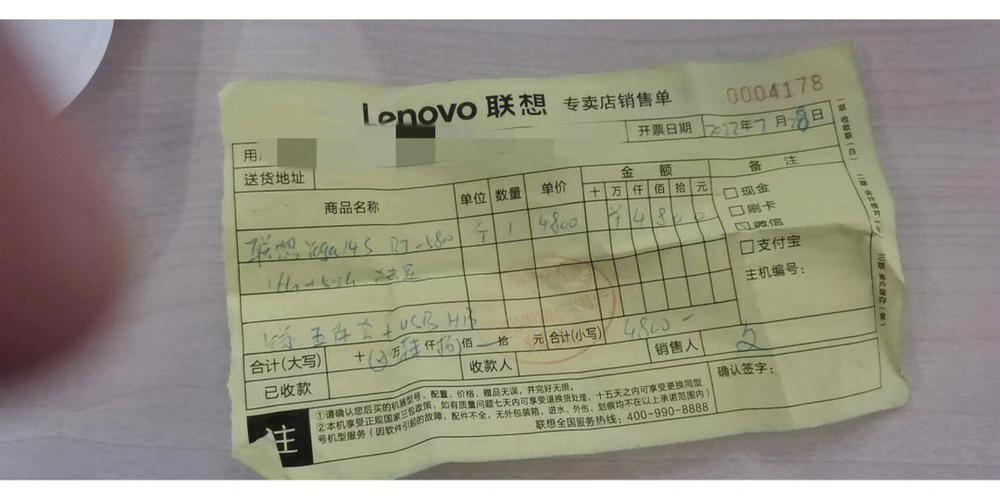 Lenovo 联想 专卖店销售单 0004178
开票日期 2022年7月28日
用
送货地址
商品名称 单位 数量 单价 金额 备注
十 万 仟 佰 拾 元
联想 14S R7-5800 个 1 4800 ¥ 4 8 0 0
□现金
□刷卡
□微信
□支付宝
主机编号:
+ USB HUB
合计(大写) 十 万 仟 佰 拾 元 合计(小写) 4800-
已收款 收款人 销售人
确认签字:
注
①请确认您后买的机器型号、配置、价格、赠品无误,并完好无损。
②本机享受正规国家三包政策,如有质量问题七天内可享受退换货处理,十五天之内可享受更换同型
号机型服务(因软件引起的故障,配件不全,无外包装箱,进水、外伤、划痕均不在以上承诺范围内)
联想全国服务热线:400-990-8888
一联 收款联(白)
三联 客户留存(黄)